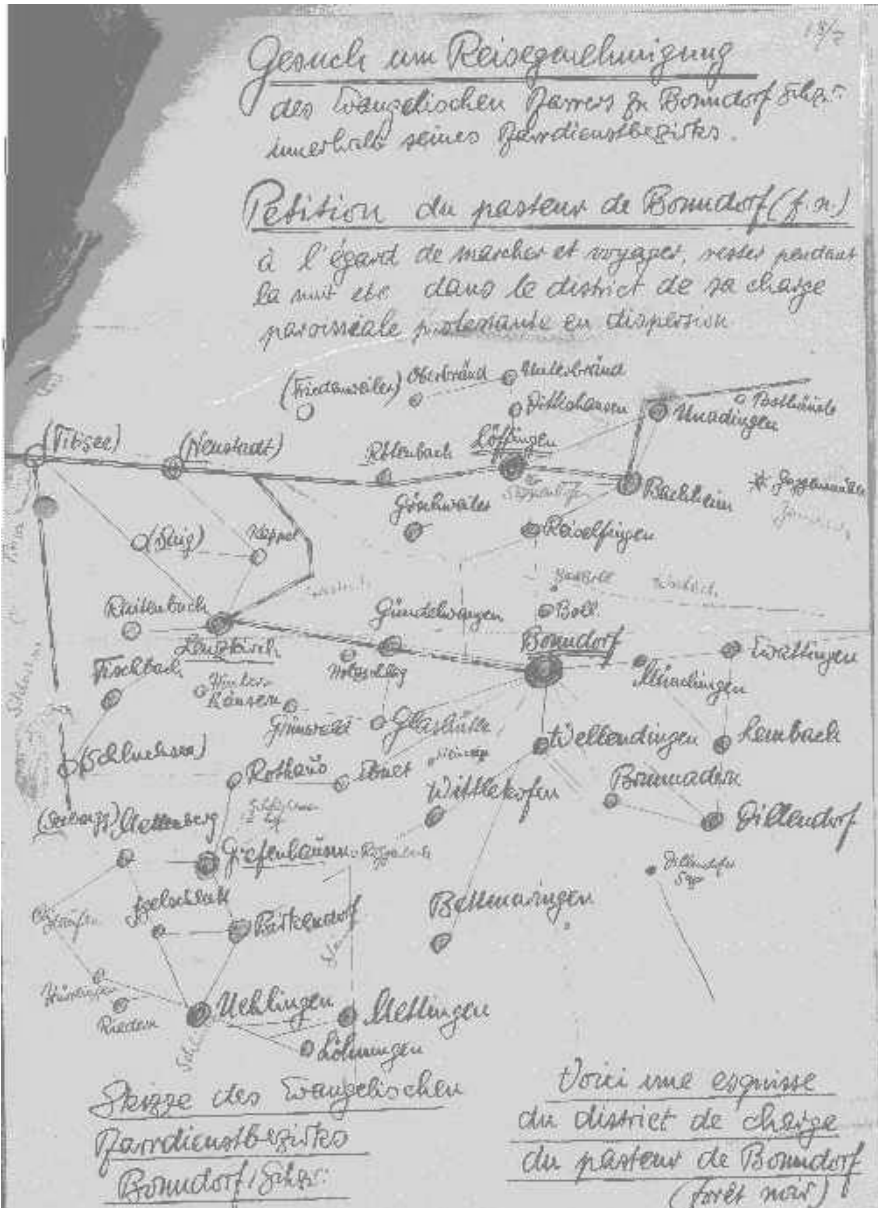 Gesuch um Reisegenehmigung
des Evangelischen Pfarrers zu Bonndorf Schw:
innerhalb seines Pfarrdienstbezirks.
Pétition du pasteur de Bonndorf (f. n.)
à l'égard de marcher et voyager, rester pendant
la nuit etc dans le district de sa charge
paroissiale protestante en dispersion
(Friedenweiler) Oberbränd Unterbränd
Dittishausen Unadingen Posthäusle
(Titisee) (Neustadt) Rötenbach Löffingen
Göschweiler Bachheim
(Saig) Kappel Reiselfingen
Raitenbach Gündelwangen Boll
Lenzkirch Holzschlag Bonndorf Ewattingen
Fischbach Münchingen
Grünwald Glashütte
(Schluchsee) Wellendingen Lembach
Rothaus Ebnet Wittlekofen Brunnadern
(Seebrugg) Mettenberg Dillendorf
Grafenhausen
Dillendorfer
Bettmaringen
Birkendorf
Riedern Uehlingen Mettingen
Löhningen
Skizze des Evangelischen
Pfarrdienstbezirks
Bonndorf/Schw:
Voici une esquisse
du district de charge
du pasteur de Bonndorf
(forêt noir)